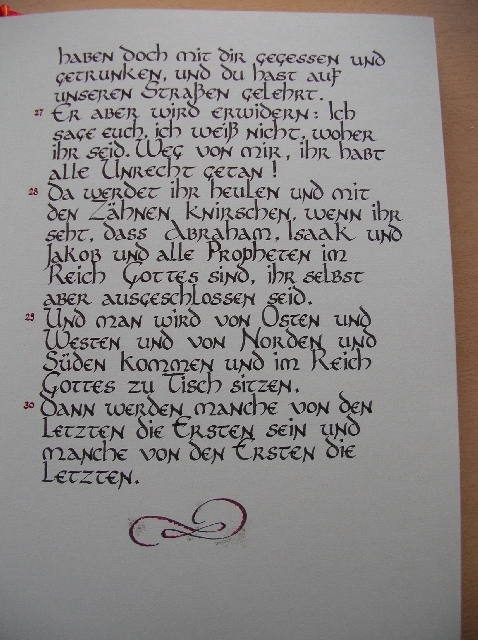 haben doch mit dir gegessen und
getrunken, und du hast auf
unseren Straßen gelehrt.
27 Er aber wird erwidern: Ich
sage euch, ich weiß nicht, woher
ihr seid. Weg von mir, ihr habt
alle Unrecht getan!
28 Da werdet ihr heulen und mit
den Zähnen knirschen, wenn ihr
seht, dass Abraham, Isaak und
Jakob und alle Propheten im
Reich Gottes sind, ihr selbst
aber ausgeschlossen seid.
29 Und man wird von Osten und
Westen und von Norden und
Süden kommen und im Reich
Gottes zu Tisch sitzen.
30 Dann werden manche von den
Letzten die Ersten sein und
manche von den Ersten die
Letzten.